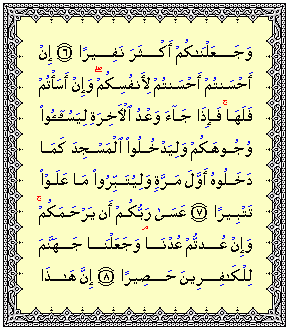 وَجَعَلْنَـٰكُمْ أَكْثَرَ نَفِيرًا ﴿٦﴾ إِنْ
أَحْسَنتُمْ أَحْسَنتُمْ لِأَنفُسِكُمْ ۖ وَإِنْ أَسَأْتُمْ
فَلَهَا ۚ فَإِذَا جَآءَ وَعْدُ ٱلْـَٔاخِرَةِ لِيَسُـۥٓـُٔوا۟
وُجُوهَكُمْ وَلِيَدْخُلُوا۟ ٱلْمَسْجِدَ كَمَا
دَخَلُوهُ أَوَّلَ مَرَّةٍ وَلِيُتَبِّرُوا۟ مَا عَلَوْا۟
تَتْبِيرًا ﴿٧﴾ عَسَىٰ رَبُّكُمْ أَن يَرْحَمَكُمْ ۚ
وَإِنْ عُدتُّمْ عُدْنَا ۘ وَجَعَلْنَا جَهَنَّمَ
لِلْكَـٰفِرِينَ حَصِيرًا ﴿٨﴾ إِنَّ هَـٰذَا